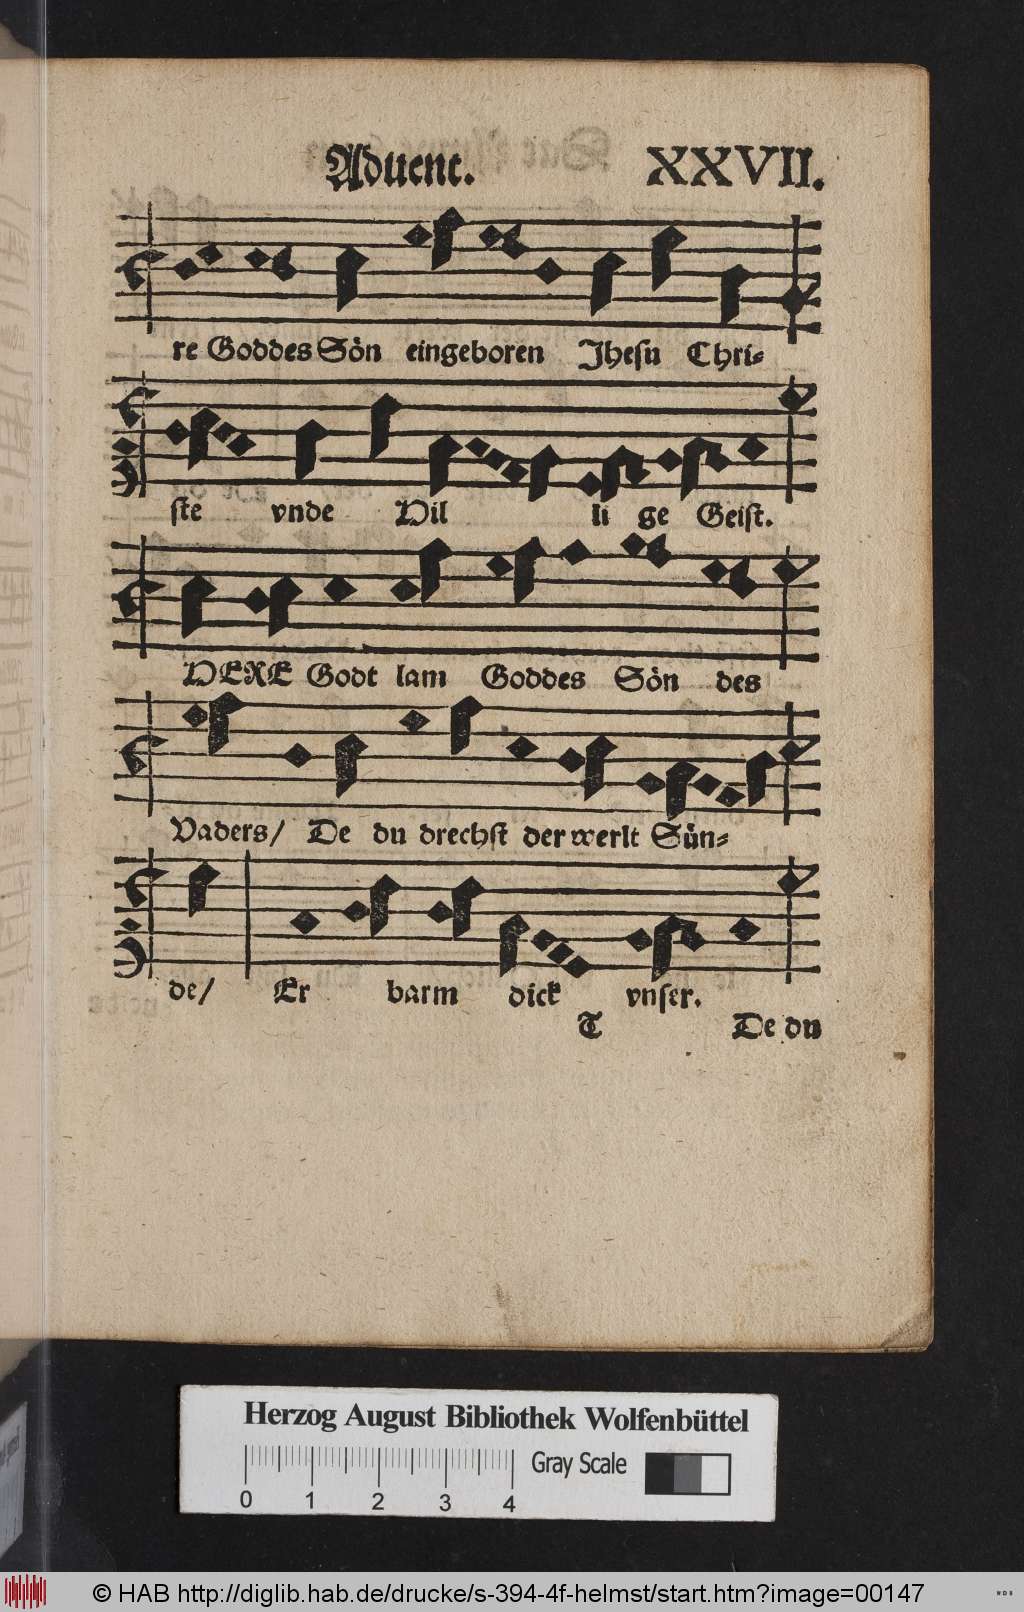 Aduent. XXVII.
re Goddes Sön eingeboren Jhesu Chri-
ste vnde Hil li ge Geist.
HERE Godt lam Goddes Sön des
Vaders/ De du drechst der werlt Sün-
de/ Er barm dick vnser.
T De du
Herzog August Bibliothek Wolfenbüttel
Gray Scale
0 1 2 3 4
© HAB http://diglib.hab.de/drucke/s-394-4f-helmst/start.htm?image=00147